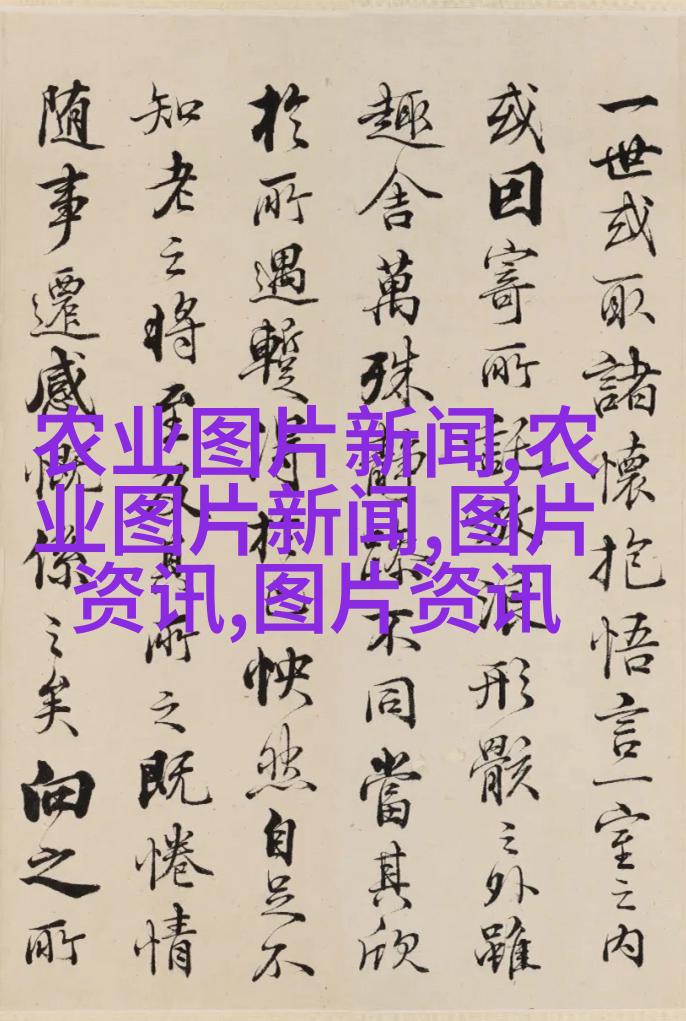 一世或取諸懷抱悟言一室之内
或因寄所託放浪形骸之外雖
趣舍萬殊静躁不同當其欣
於所遇蹔得於己怏然自足不
知老之將至及其所之既惓情
随事遷感慨係之矣向之所
农业图片新闻,农
业图片新闻,图片
资讯,图片资讯